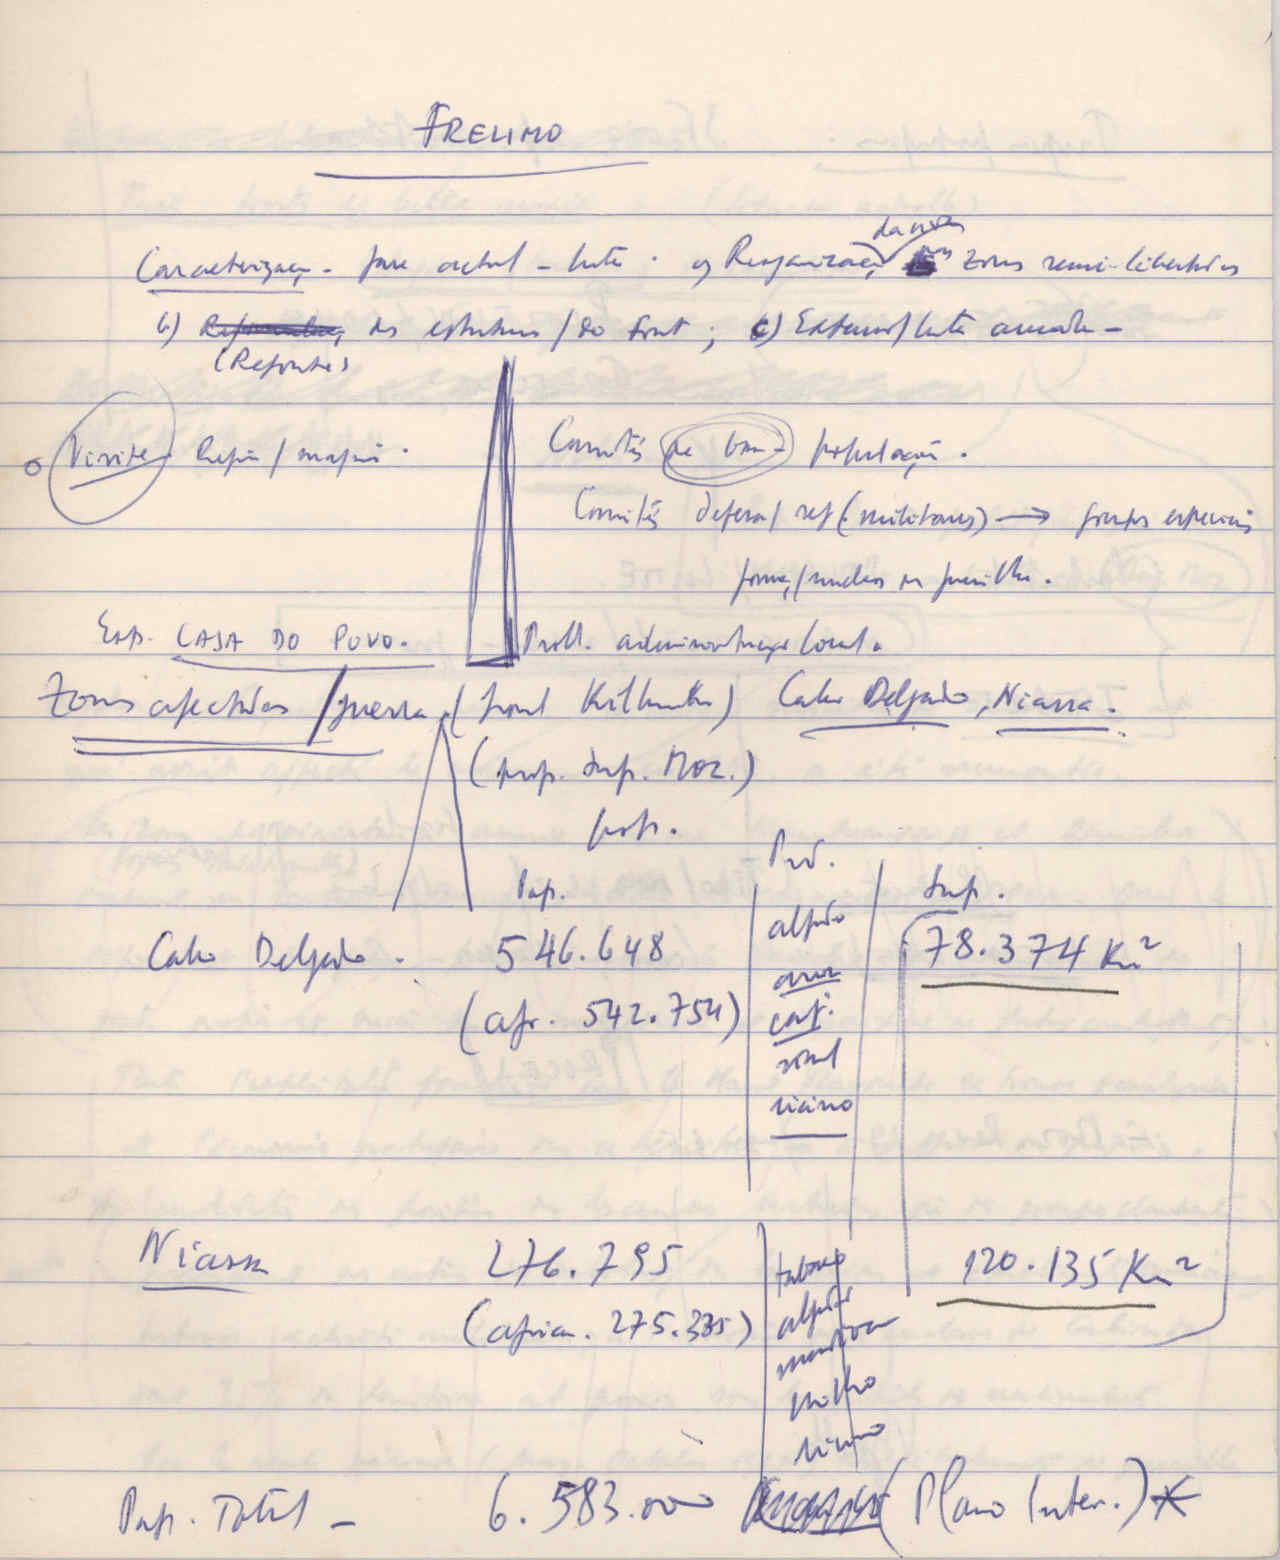 FRELIMO
Caracterizaç. fase actual - luta. a) Reorganizaç das zonas semi-libertadas
b) das estruturas / do Front; c) Extens / luta armada -
(Reforçar)
Visite
Comités de base população.
Comités defesa / (militares) → grupos especiais
formaç / nucleos guerrilha.
Esp. CASA DO POVO.
Probl. administração local.
Zonas afectadas / guerra (Cabo Delgado, Niassa.
(prop. Sup. Moz.)
port.
Prod.
Pop.
Sup.
Cabo Delgado. 546.648
78.374 Km²
(afr. 542.754)
algodão
arroz
caj.
sisal
ricino
Niassa 276.795
120.135 Km²
(african. 275.335)
tabaco
algodão
milho
ricino
Pop. Total - 6.583.000 (Plano Inter.) *